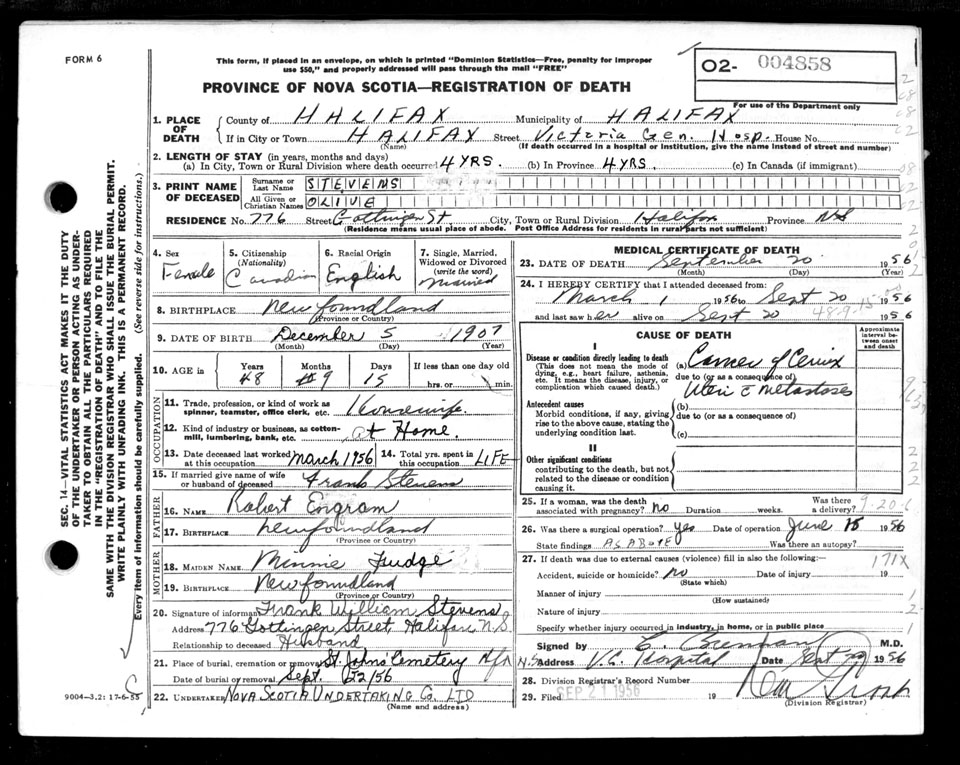 FORM 6
This form, if placed in an envelope, on which is printed "Dominion Statistics—Free, penalty for improper
use $50," and properly addressed will pass through the mail "FREE"
02- 004858
For use of the Department only
PROVINCE OF NOVA SCOTIA—REGISTRATION OF DEATH
1. PLACE OF DEATH County of HALIFAX Municipality of HALIFAX
If in City or Town HALIFAX Street Victoria Gen. Hosp. House No.
(Name) (If death occurred in a hospital or institution, give the name instead of street and number)
2. LENGTH OF STAY (in years, months and days)
(a) In City, Town or Rural Division where death occurred 4 YRS. (b) In Province 4 YRS. (c) In Canada (if immigrant)
3. PRINT NAME OF DECEASED Surname or Last Name STEVENS
All Given or Christian Names OLIVE
RESIDENCE No. 776 Street Gottingen St City, Town or Rural Division Halifax Province NS
(Residence means usual place of abode. Post Office Address for residents in rural parts not sufficient)
4. Sex Female
5. Citizenship (Nationality) Canadian
6. Racial Origin English
7. Single, Married, Widowed or Divorced (write the word) Married
8. BIRTHPLACE Newfoundland
(Province or Country)
9. DATE OF BIRTH December 5 1907
(Month) (Day) (Year)
10. AGE in Years Months Days If less than one day old
48 9 15 hrs. or min.
OCCUPATION
11. Trade, profession, or kind of work as
spinner, teamster, office clerk, etc. Housewife
12. Kind of industry or business, as cotton-
mill, lumbering, bank, etc. at Home.
13. Date deceased last worked at this occupation March 1956 14. Total yrs. spent in this occupation LIFE
15. If married give name of wife
or husband of deceased Frank Stevens
FATHER
16. NAME Robert Engram
17. BIRTHPLACE Newfoundland
(Province or Country)
MOTHER
18. MAIDEN NAME Minnie Fudge
19. BIRTHPLACE Newfoundland
(Province or Country)
20. Signature of informant Frank William Stevens
Address 776 Gottingen Street Halifax N.S
Relationship to deceased Husband
21. Place of burial, cremation or removal St. Johns Cemetery Hfx N.S
Date of burial or removal Sept. 22/56
22. UNDERTAKER NOVA SCOTIA UNDERTAKING Co. LTD
(Name and address)
MEDICAL CERTIFICATE OF DEATH
23. DATE OF DEATH September 20 1956
(Month) (Day) (Year)
24. I HEREBY CERTIFY that I attended deceased from:
March 1 1956 to Sept 20 1956
and last saw her alive on Sept 20 1956
48-9-15
CAUSE OF DEATH
Approximate interval between onset and death
I
Disease or condition directly leading to death
(This does not mean the mode of
dying, e.g., heart failure, asthenia,
etc. It means the disease, injury, or
complication which caused death.)
(a) Cancer of Cervix
due to (or as a consequence of)
Uteri c̄ Metastoses
Antecedent causes
Morbid conditions, if any, giving
rise to the above cause, stating the
underlying condition last.
(b)
due to (or as a consequence of)
(c)
II
Other significant conditions
contributing to the death, but not
related to the disease or condition
causing it.
25. If a woman, was the death
associated with pregnancy? no Duration weeks. Was there a delivery?
9-20-
26. Was there a surgical operation? yes Date of operation June 18 1956
State findings AS ABOVE Was there an autopsy?
27. If death was due to external causes (violence) fill in also the following:—
171X
Accident, suicide or homicide? no Date of injury 19
(State which)
Manner of injury
(How sustained)
Nature of injury
Specify whether injury occurred in industry, in home, or in public place
Signed by M.D.
Address V.G. Hospital Date Sept 1956
28. Division Registrar's Record Number
29. Filed SEP 21 1956 19
(Division Registrar)
SEC. 14—VITAL STATISTICS ACT MAKES IT THE DUTY
OF THE UNDERTAKER OR PERSON ACTING AS UNDER-
TAKER TO OBTAIN ALL THE PARTICULARS REQUIRED
IN THE "REGISTRATION OF DEATH" AND TO FILE THE
SAME WITH THE DIVISION REGISTRAR WHO SHALL ISSUE THE BURIAL PERMIT.
WRITE PLAINLY WITH UNFADING INK. THIS IS A PERMANENT RECORD.
Every item of information should be carefully supplied. (See reverse side for instructions.)
9004-3,2: 17-6-55